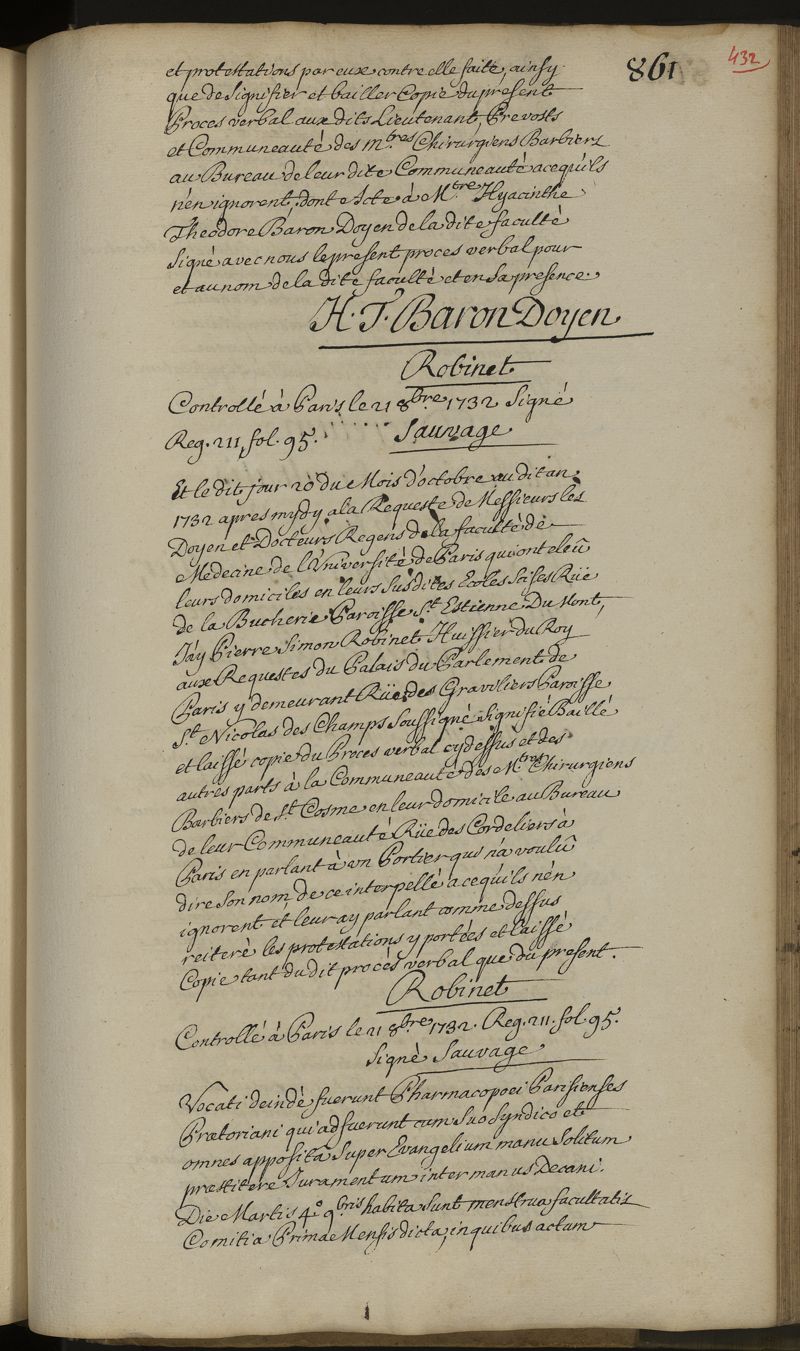 432
861
et protestations par eux contre elle faite, ainsy
que de signifier et bailler Copie du present
Proces verbal aux dits Lieutenant, Prevosts
et Communeauté des m.tres Chirurgiens Barbiers
au Bureau de leur dite Communeauté acequ'ils
n'en ignorent, dont Acte à M.tre Hyacinthe
Theodore Baron Doyen de la dite faculté
Signé avec nous le present proces verbal pour
et au nom de la dite faculté et en sa presence.
H. T. Baron Doyen
Robinet
Controllé à Paris le 21 8.bre 1732 Signé
Reg. 211, fol. 95. Sauvage
Et le dit jour 20 du Mois d'octobre au dit an
1732 apres mydy a la Requeste de Messieurs les
Doyen et Docteurs Regens de la faculté de
Medecine de l'Université de Paris qui ont eleû
leurs domiciles en leurs susdites Ecoles scises Rüe
de la Bucherie Paroisse S.t Estienne Du Mont,
J'ay Pierre Simon Robinet Huissier du Roy
aux Requestes du Palais du Parlement de
Paris y demeurant Rüe des Gravilliers Paroisse
S.t Nicolas des Champs Soussigné Signifié Baillé
et laissé copie du Proces verbal cy dessus et des
autres parts à la Communeauté des M.tres Chirurgiens
Barbiers de S.t Cosme en leur domicile au Bureau
de leur Communeauté Rüe des Cordeliers à
Paris en parlant à un Portier qui n'a voulû
dire son nom de ce interpellé a cequ'ils n'en
ignorent et leur ay parlant comme dessus
reiteré les protestations y portées et laissé
Copie tant du dit procès verbal que du present.
Robinet
Controllé à Paris le 21 8.bre 1732. Reg. 211. fol. 95.
Signé Sauvage
Vocati deindè fuerunt Pharmacopoei Parisienses
Praetoriani qui adfuerunt cum suo Syndico et
omnes appositâ super Evangelium manu Solitum
praestitere Juramentum inter manus Decani.
Die Martis 4.o 9.bris habita sunt menstrua facultatis
Comitia Prima Mensis dicta, in quibus actum